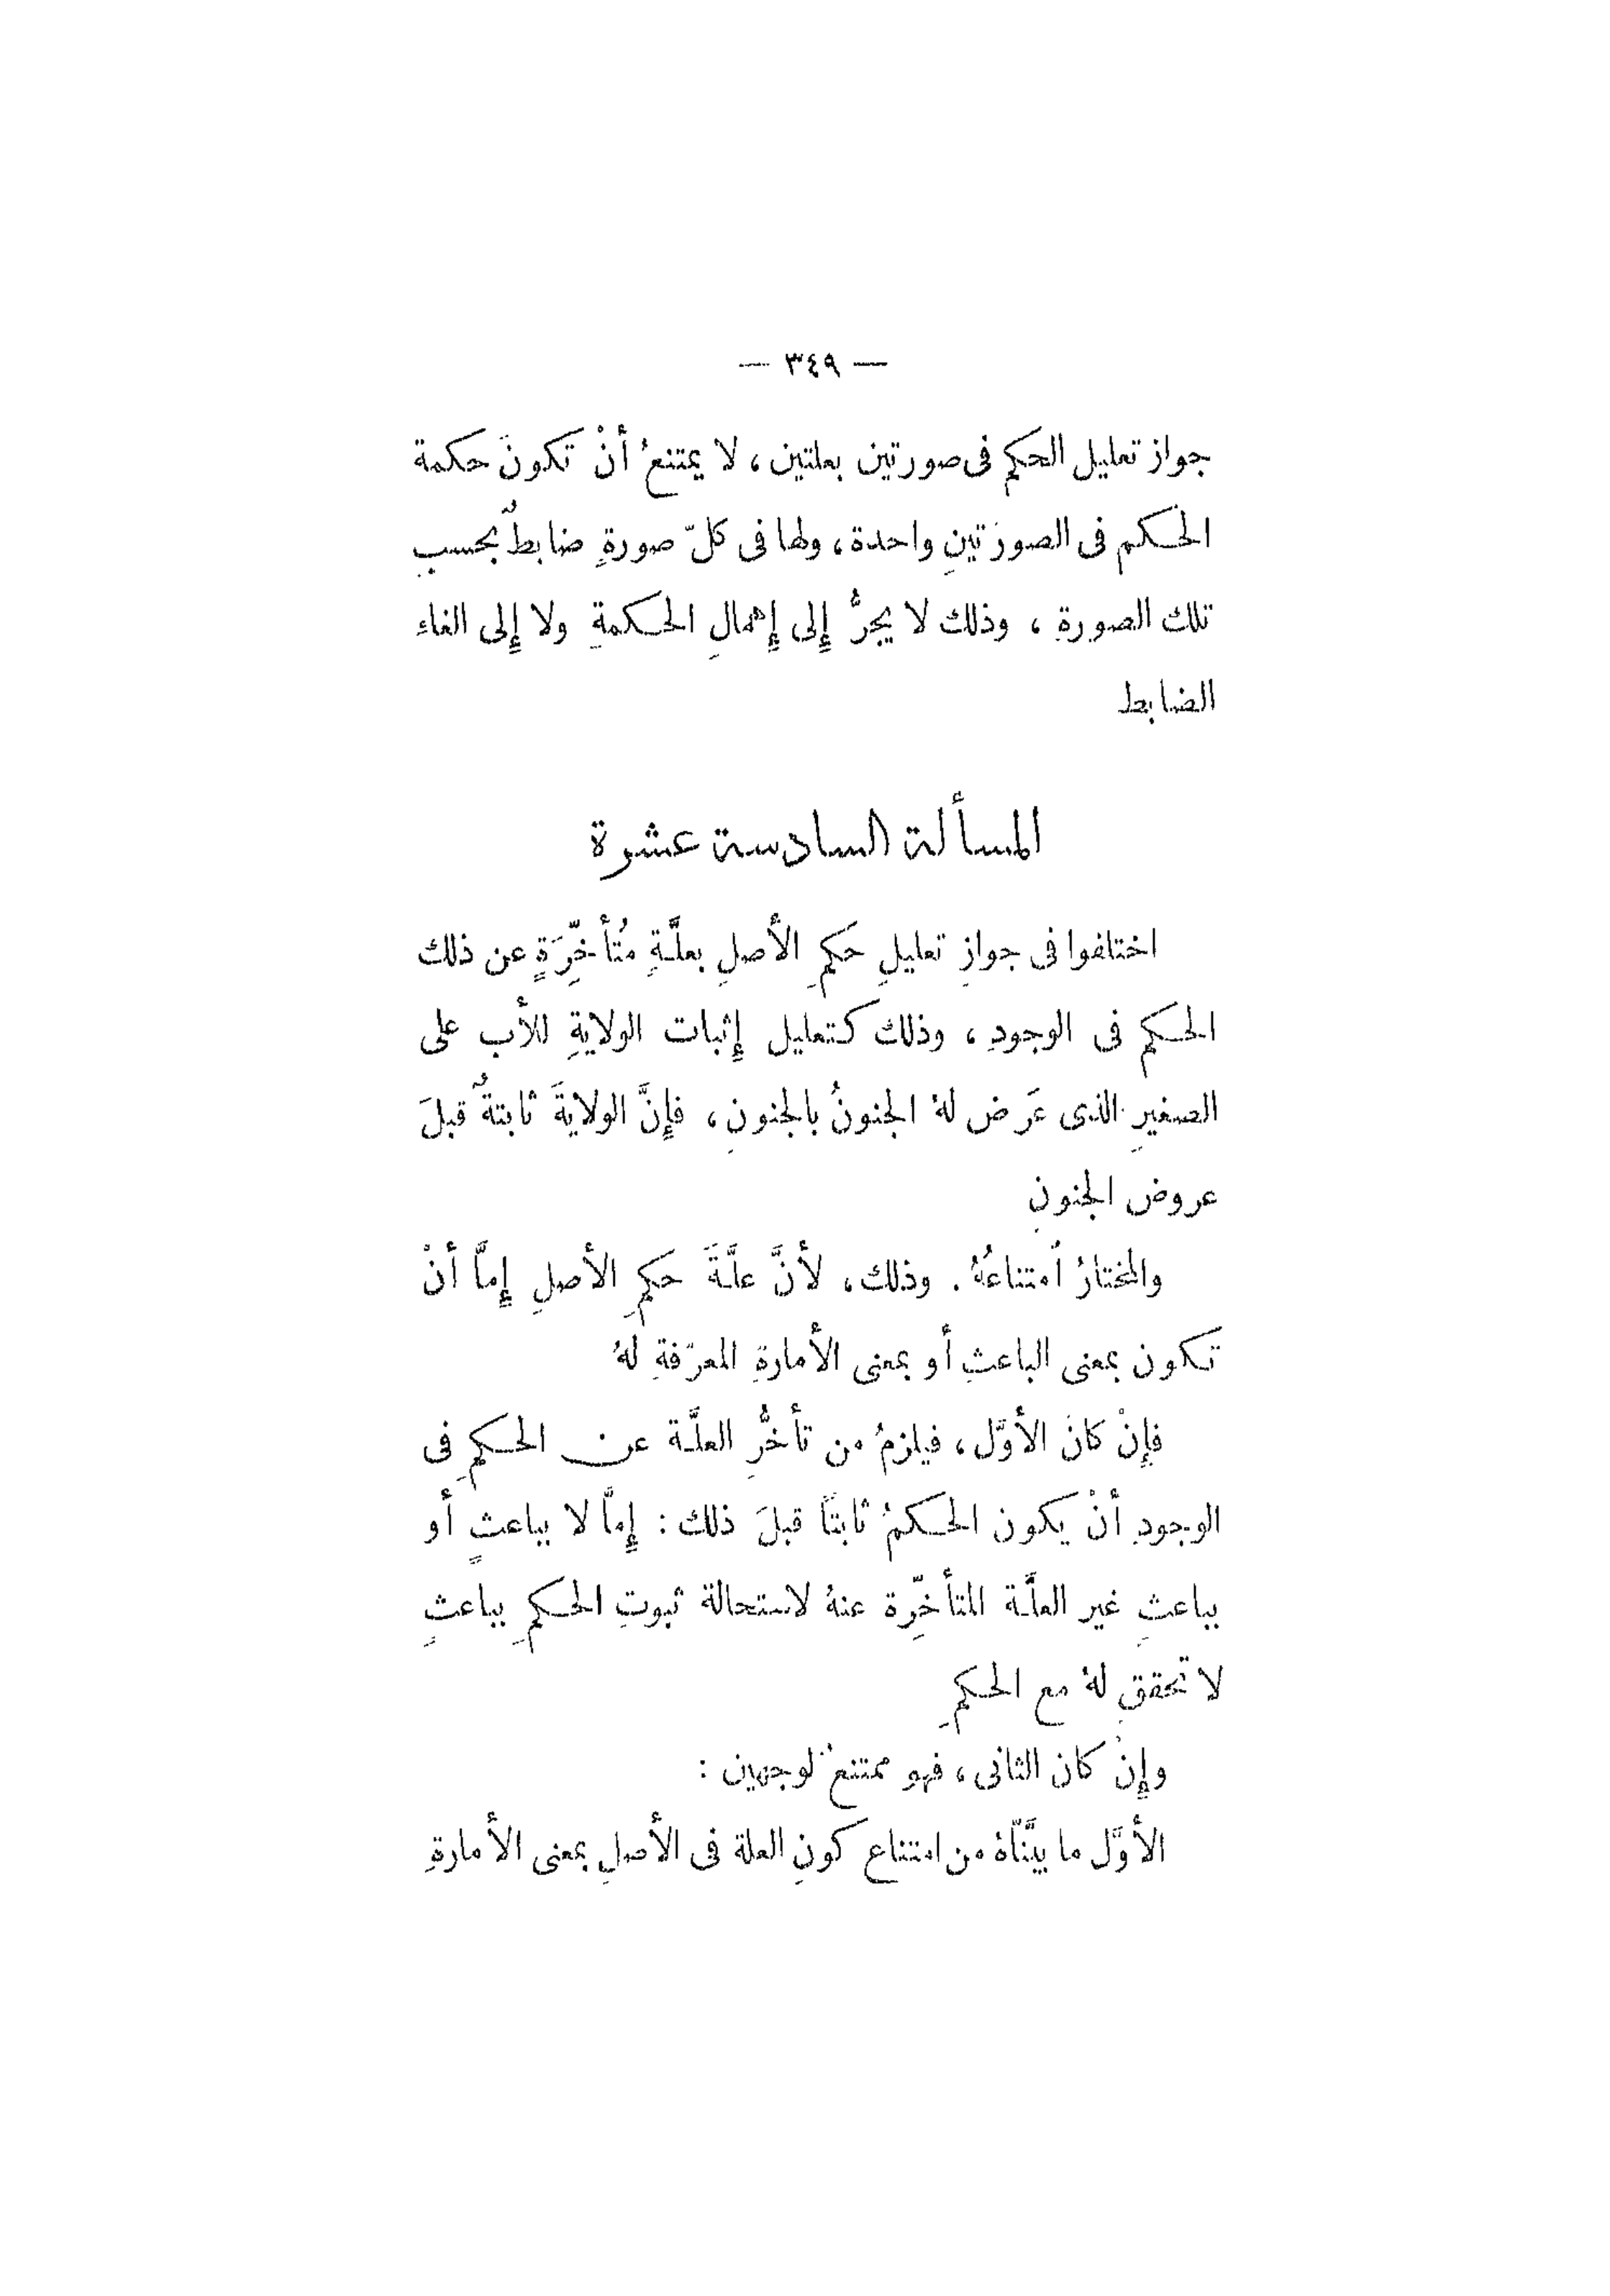 — ٣٤٩ —
جواز تعليل الحكم فى صورتين بعلتين، لا يمتنعُ أنْ تكونَ حكمة
الحكم فى الصورَتينِ واحدة، ولها فى كلّ صورةٍ ضابطٌ بحسبِ
تلك الصورةِ، وذلك لا يجرُّ إِلى إِهمالِ الحكمةِ ولا إِلى الغاءِ
الضابط
المسألة السادسة عشرة
اختلفوا فى جوازِ تعليلِ حكمِ الأصلِ بعلَّةٍ مُتأخِّرَةٍ عن ذلك
الحكم فى الوجودِ، وذلك كتعليل إِثبات الولايةِ للأب على
الصغيرِ الذى عَرَض لهُ الجنونُ بالجنونِ، فإِنَّ الولايةَ ثابتةٌ قبلَ
عروض الجنونِ
والمختارُ اُمتناعُهُ. وذلك، لأنَّ علَّةَ حكمِ الأصلِ إِمَّا أنْ
تكون بمعنى الباعثِ أو بمعنى الأمارةِ المعرّفةِ لهُ
فإِنْ كانَ الأوَّل، فيلزمُ من تأخُّرِ العلَّة عن الحكمِ فى
الوجودِ أنْ يكون الحكمُ ثابتاً قبلَ ذلك: إِمَّا لا بباعثٍ أو
بباعثِ غير العلَّة المتأخِّرة عنهُ لاستحالة ثبوتِ الحكمِ بباعثٍ
لا تحققِ لهُ مع الحكمِ
وإِنْ كان الثانى، فهو ممتنعٌ لوجهين:
الأوَّل ما بيَّنَّاهُ من امتناع كونِ العلة فى الأصلِ بمعنى الأمارةِ